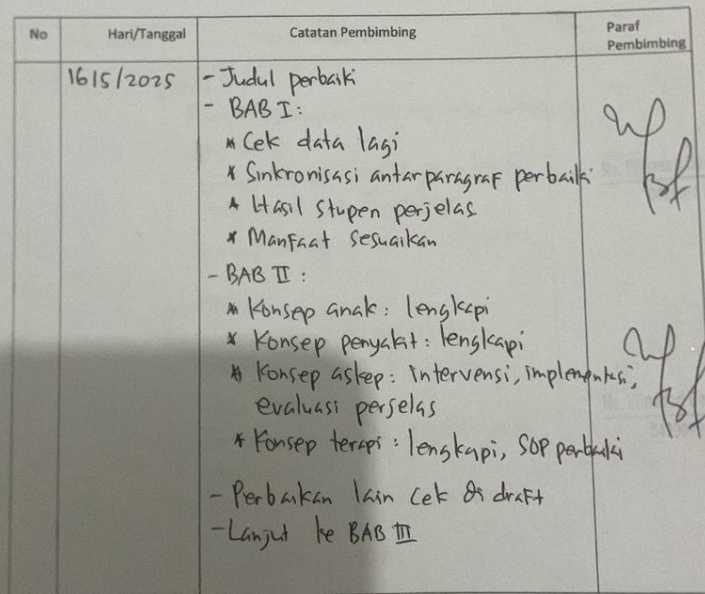 No Hari/Tanggal Catatan Pembimbing Paraf Pembimbing
16/5/2025 - Judul perbaiki
- BAB I:
* Cek data lagi
* Sinkronisasi antar paragraf perbaiki
* Hasil Stupen perjelas
* Manfaat sesuaikan
- BAB II:
* Konsep anak: lengkapi
* Konsep penyakit: lengkapi
* Konsep askep: intervensi, implementasi,
evaluasi perjelas
* Konsep terapi: lengkapi, SOP perbaiki
- Perbaikan lain cek di draft
- Lanjut ke BAB III